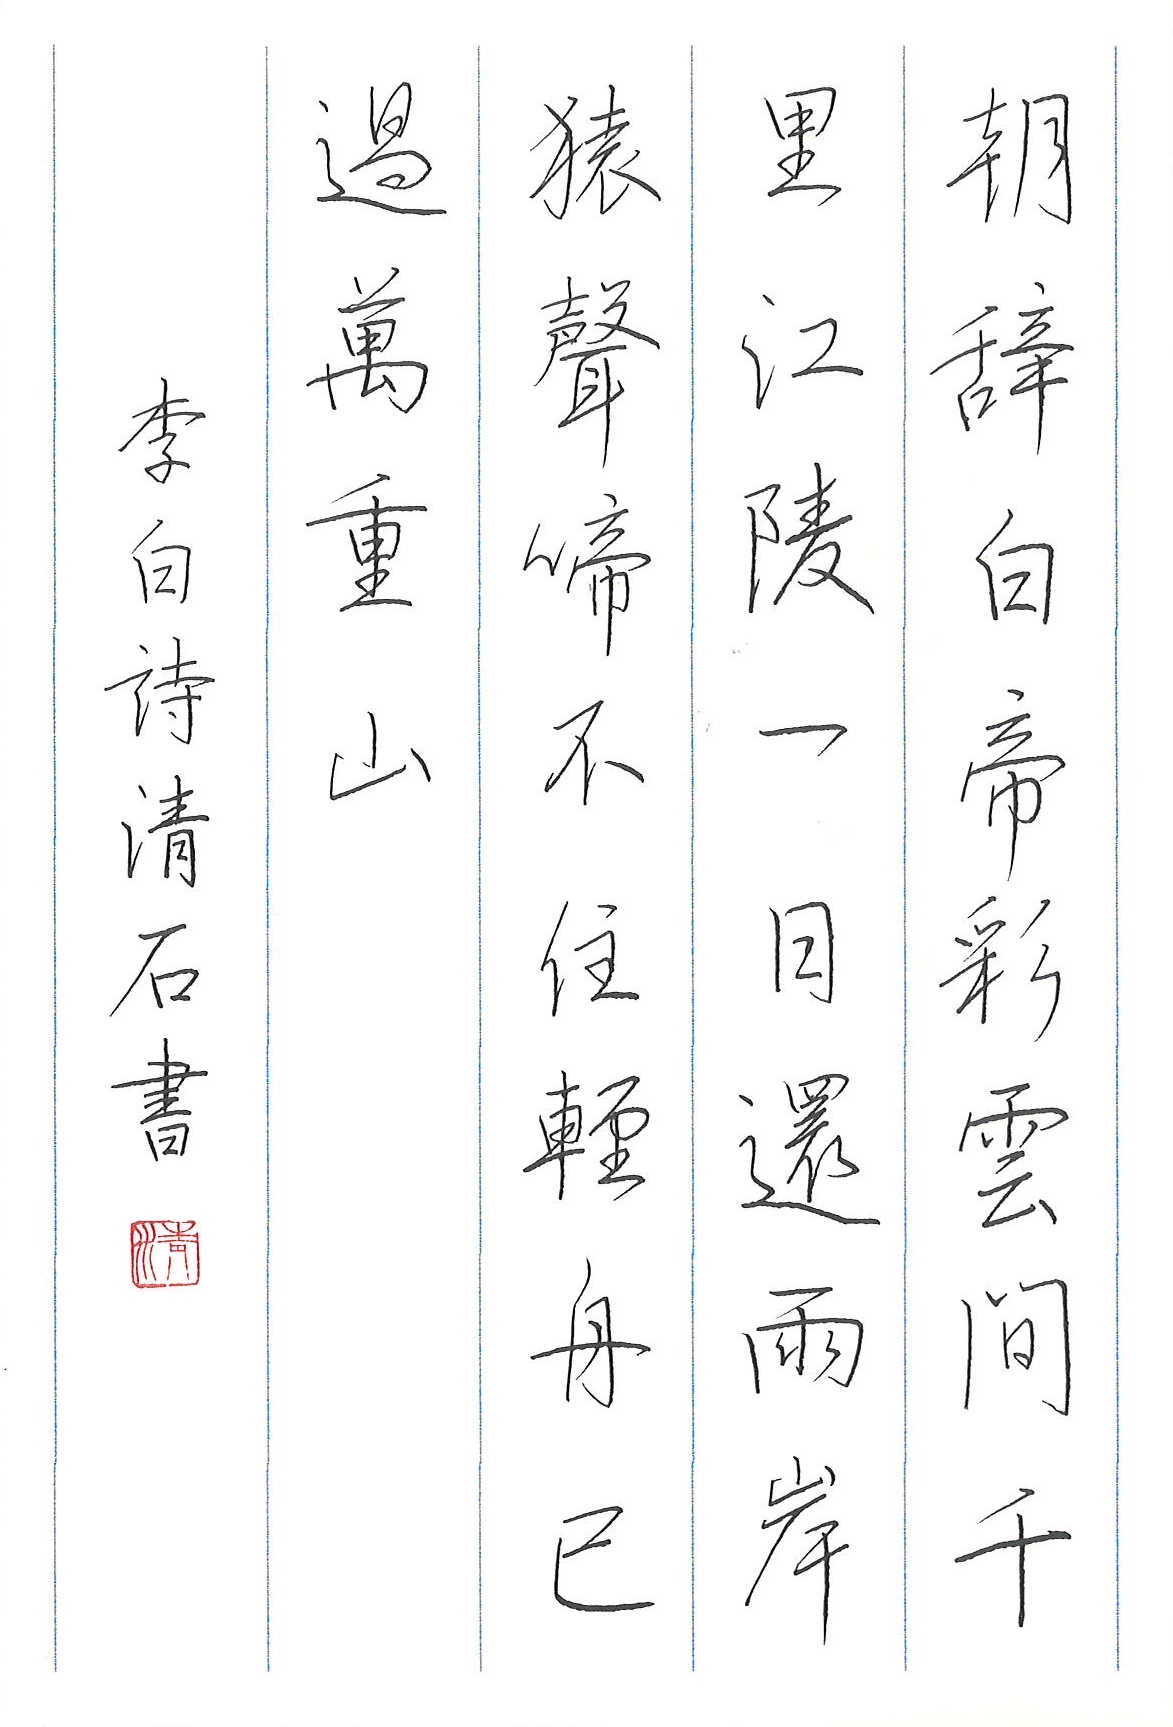 朝辞白帝彩雲間千
里江陵一日還兩岸
猿聲啼不住輕舟已
過萬重山
李白詩清石書
清